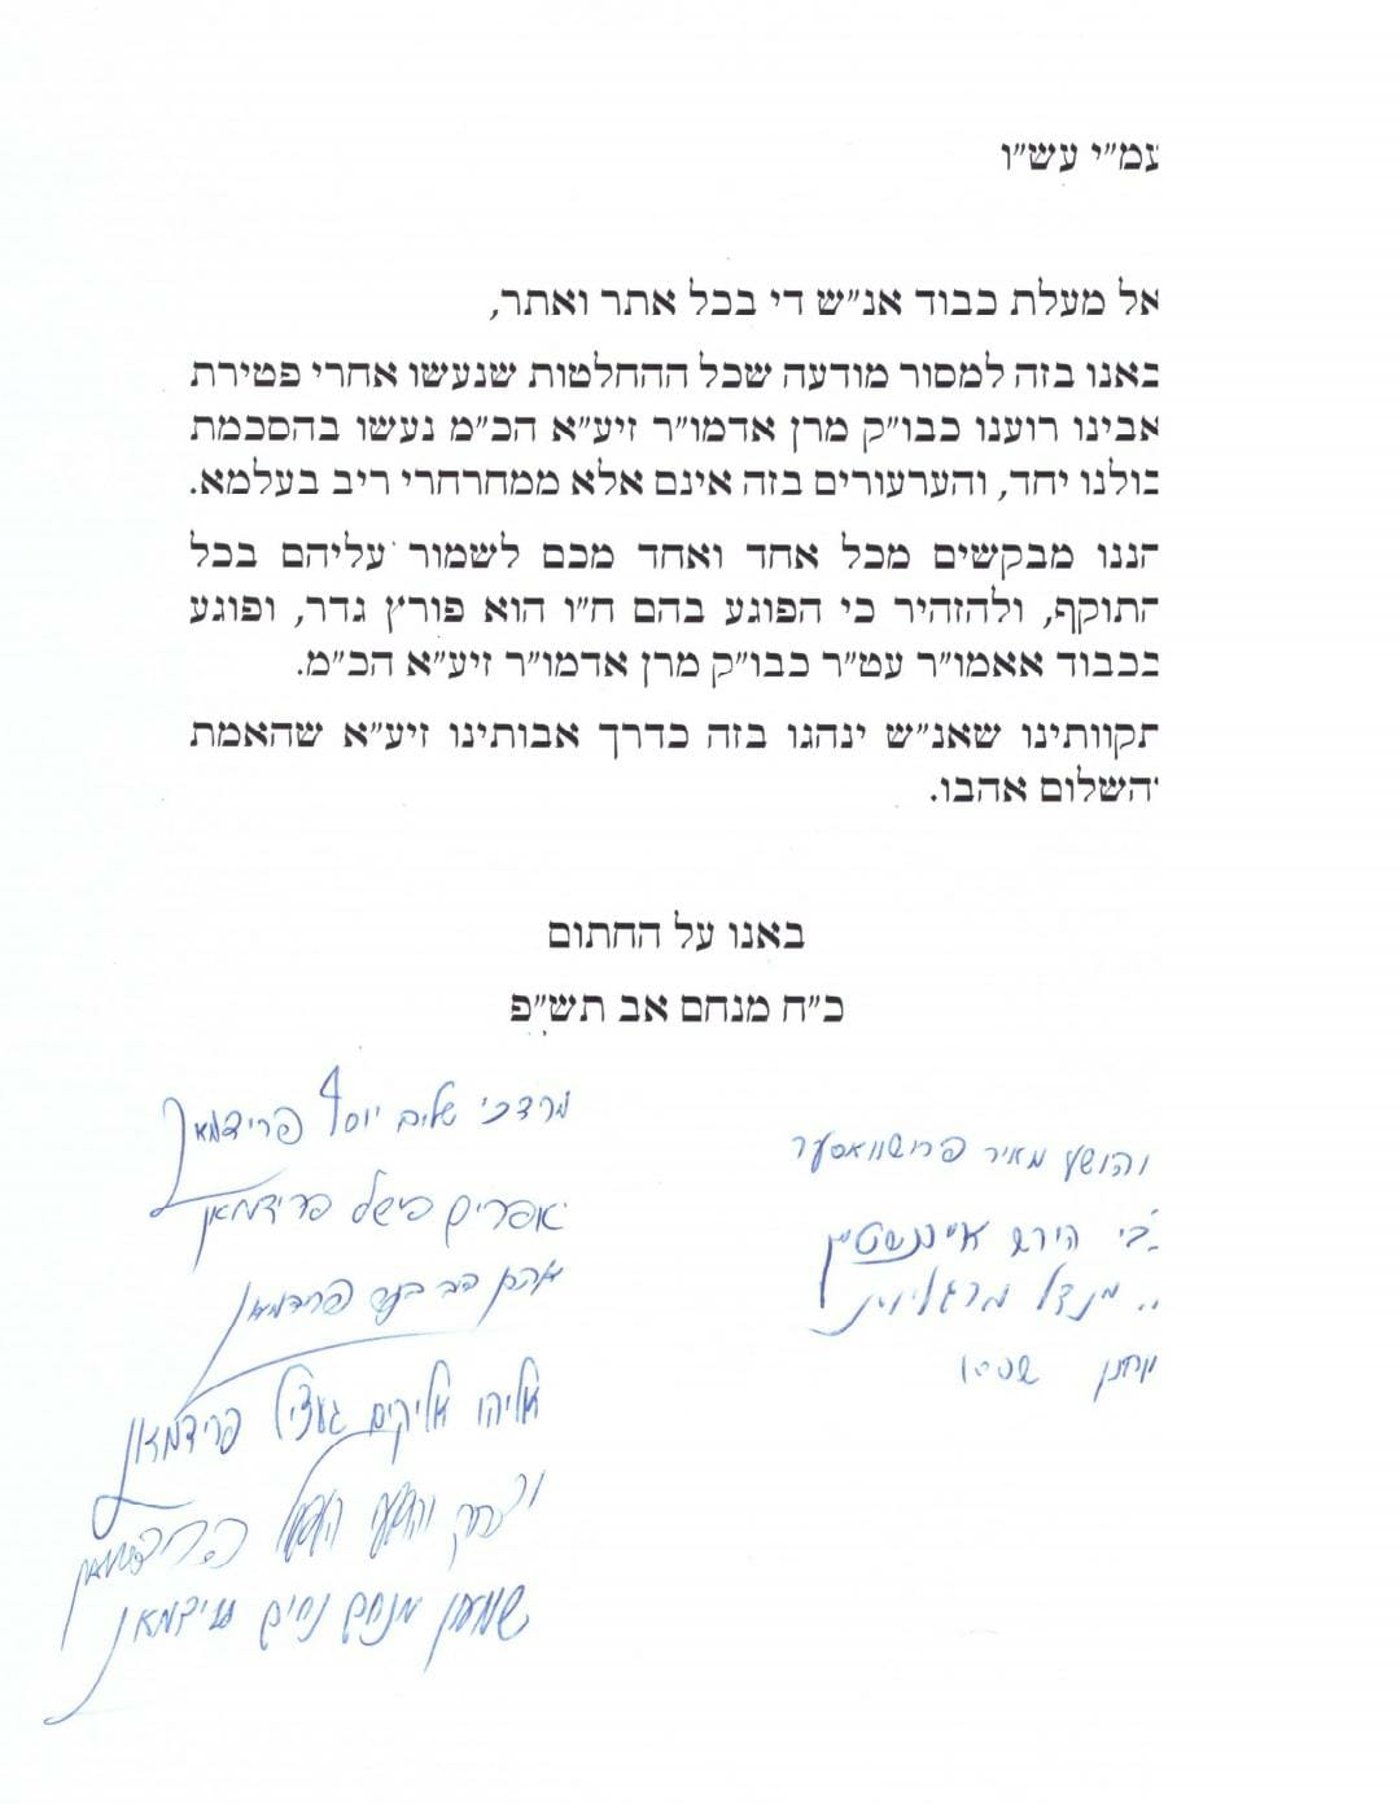 עמ״י עש״ו
אל מעלת כבוד אנ״ש די בכל אתר ואתר,
באנו בזה למסור מודעה שכל ההחלטות שנעשו אחרי פטירת
אבינו רוענו כבו״ק מרן אדמו״ר זיע״א הכ״מ נעשו בהסכמת
כולנו יחד, והערעורים בזה אינם אלא ממחרחרי ריב בעלמא.
הננו מבקשים מכל אחד ואחד מכם לשמור עליהם בכל
התוקף, ולהזהיר כי הפוגע בהם ח״ו הוא פורץ גדר, ופוגע
בכבוד אאמו״ר עט״ר כבו״ק מרן אדמו״ר זיע״א הכ״מ.
תקוותינו שאנ״ש ינהגו בזה כדרך אבותינו זיע״א שהאמת
והשלום אהבו.
באנו על החתום
כ״ח מנחם אב תש״פ
מרדכי שלום יוסף פרידמאן
אפרים פישל פרידמאן
פרידמאן
אליהו אליקים געציל פרידמאן
שמעון מנחם נחום פרידמאן
מאיר פרישוואסער
הירש איינשטיין
מנדל מרגליות